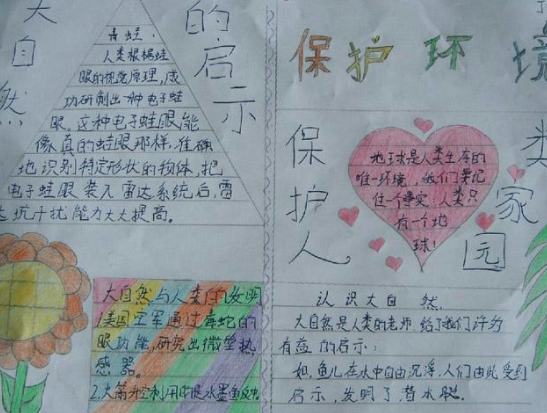 大自然
的启示
青蛙:
人类根据蛙
眼的视觉原理,成
功研制出一种电子蛙
眼。这种电子蛙眼能
像真的蛙眼那样,准确
地识别特定形状的物体,把
电子蛙眼装入雷达系统后,雷
达抗干扰能力大大提高。
大自然与人类的发明
1.美国空军通过毒蛇的
眼功能,研究出微型热
感器。
2.火箭升空利用的是水母墨鱼反冲
保护环境
保护人类家园
地球是人类生存的
唯一环境,我们要记
住一个事实,人类只
有一个地
球!
认识大自然
大自然是人类的老师 给了我们许多
有益的启示:
如,鱼儿在水中自由沉浮,人们由此受到
启示,发明了潜水艇。